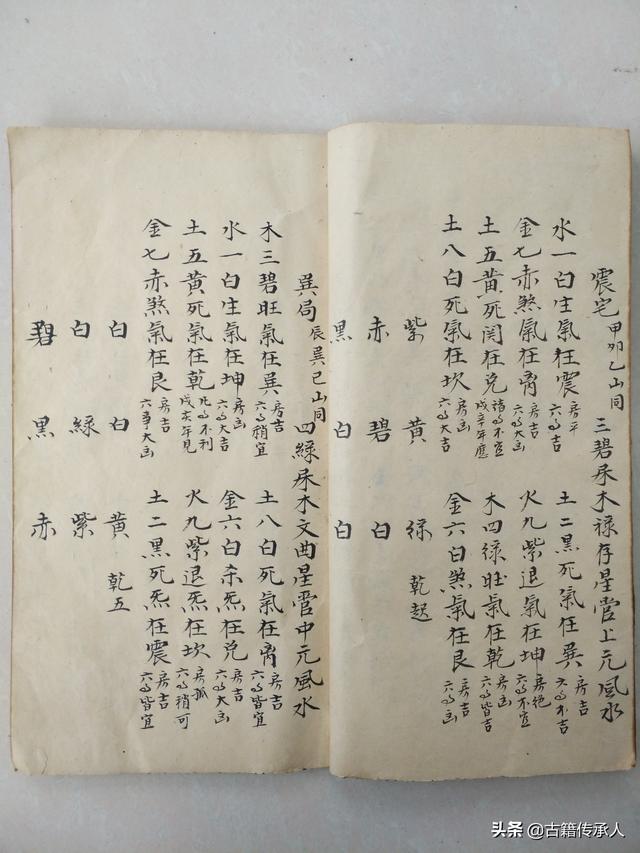 震宅 甲卯乙山同 三碧屬木祿存星管上元風水
水一白生氣在震 房平 六事吉 土二黑死氣在巽 房吉 六事不吉
金七赤煞氣在离 房吉 六事大凶 火九紫退氣在坤 房绝 六事不宜
土五黄死関在兑 諸事不宜 戌辛年應 木四绿旺氣在乾 房凶 六事皆吉
土八白死氣在坎 房凶 六事大凶 金六白煞氣在艮 房吉 六事凶
紫 黄 绿 乾起
赤 碧 白
黑 白 白
巽局 辰巽巳山同 四綠屬木文曲星管中元風水
木三碧旺氣在巽 房吉 六事稍宜 土八白死氣在离 房吉 六事皆宜
水一白生氣在坤 房凶 六事大吉 金六白杀炁在兑 房吉 六事大凶
土五黄死氣在乾 此事不利 戌亥年見 火九紫退炁在坎 房孤 六事稍可
金七赤煞氣在艮 房吉 六事大凶 土二黑死炁在震 房吉 六事皆宜
白 白 黄 乾五
白 綠 紫
碧 黑 赤
头条 @古籍传承人